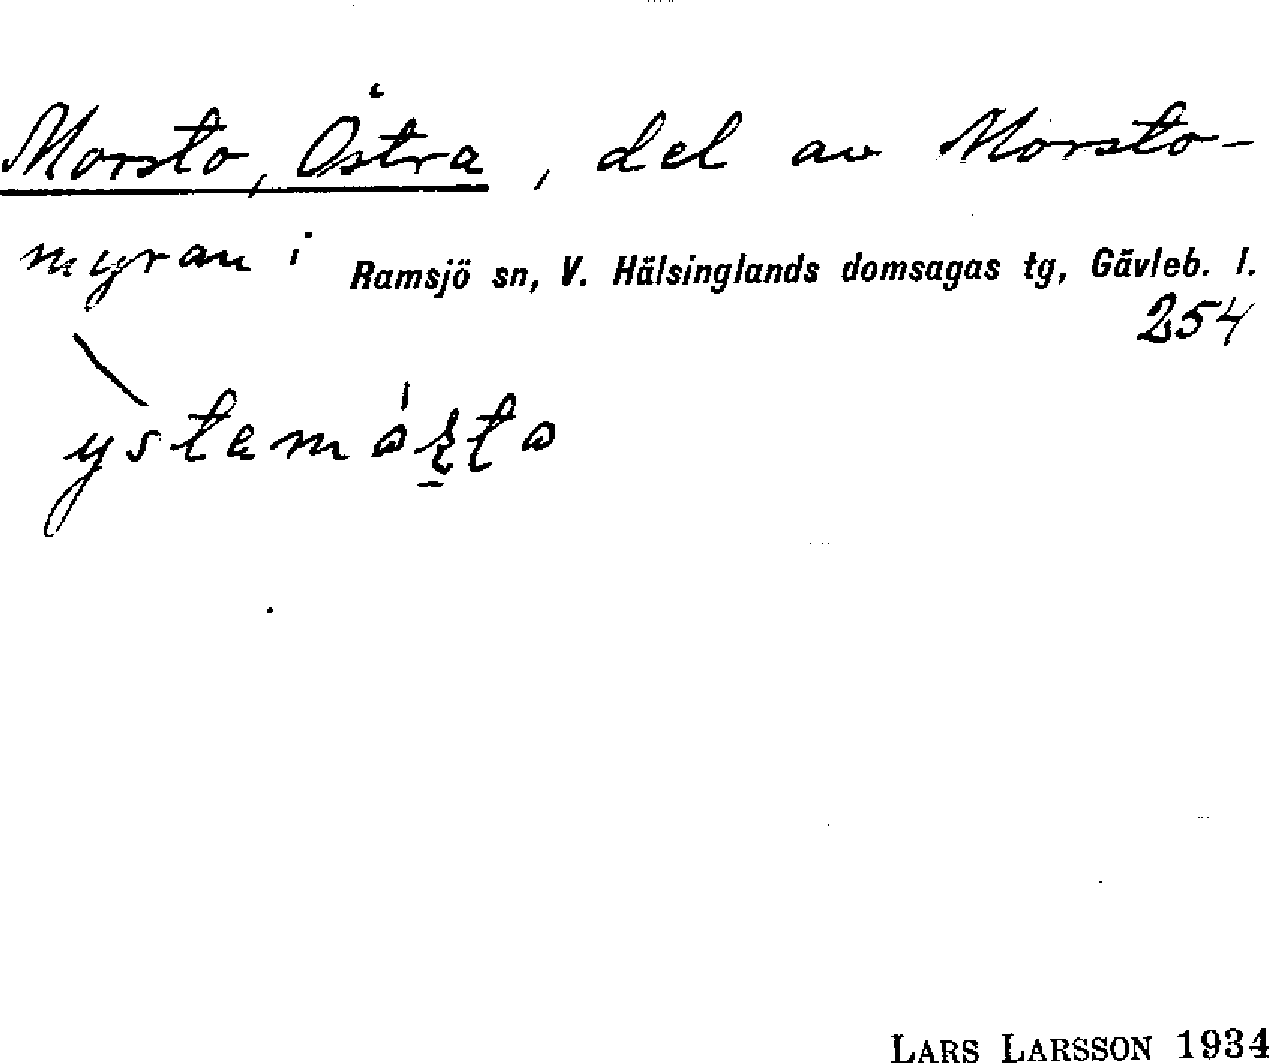 Morsto, Östra, del av Morsto-
myran i Ramsjö sn, V. Hälsinglands domsagas tg, Gävleb. l.
254
LARS LARSSON 1934